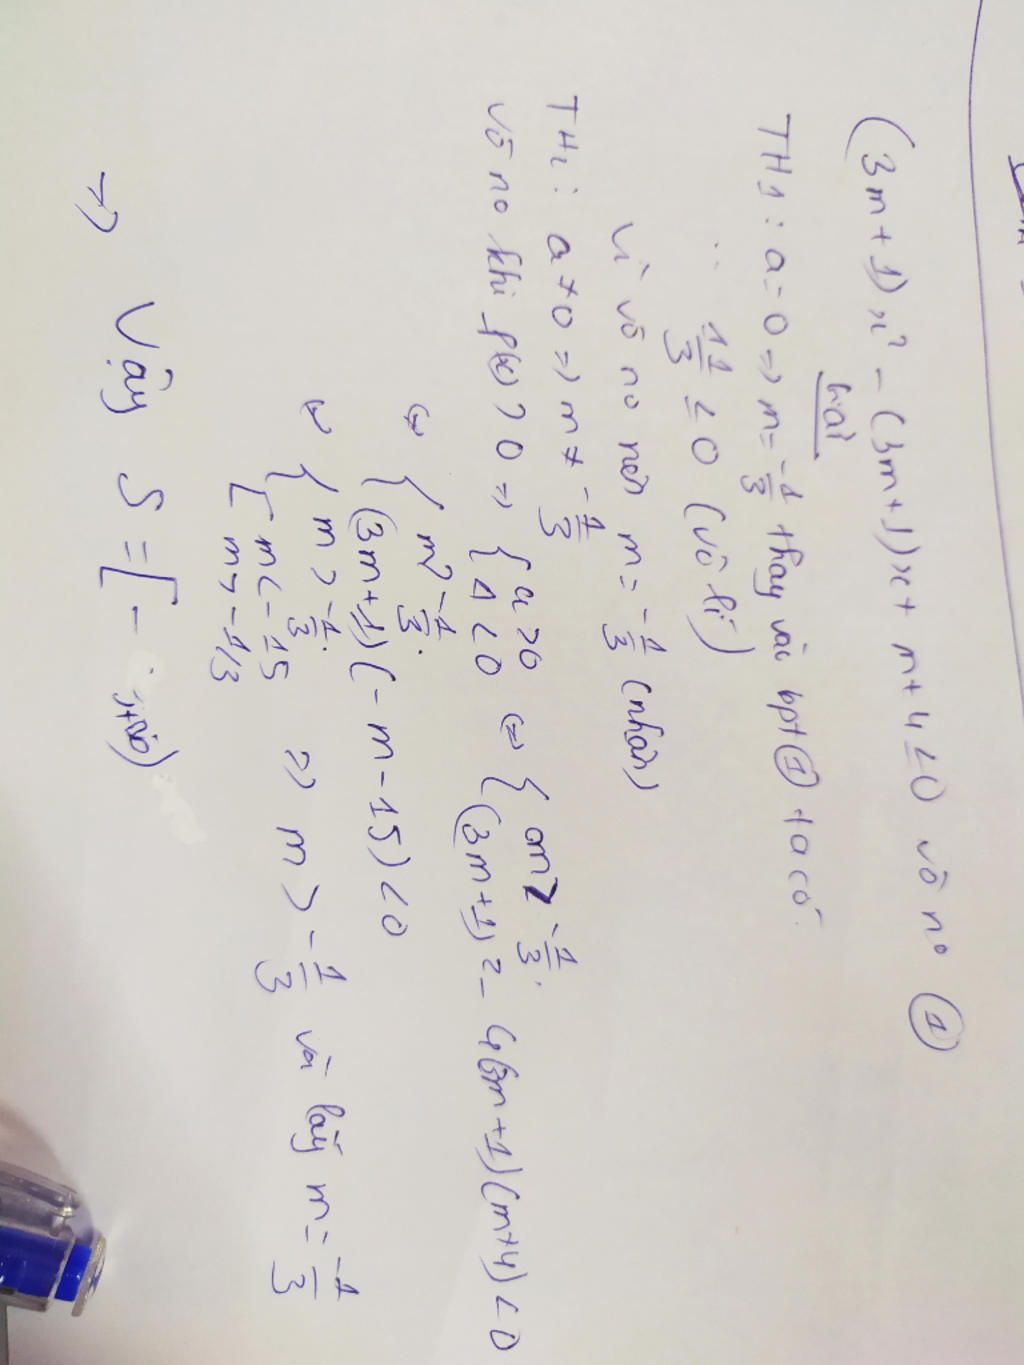 (3m+1)x² - (3m+1)x + m+4 ≤ 0 vô no ①
Giải
TH1: a=0 => m = -1/3 thay vào bpt ① ta có.
11/3 ≤ 0 (vô lí)
Vì vô no nên m = -1/3 (nhận)
TH2: a ≠ 0 => m ≠ -1/3
vô no khi f(x) > 0 => { a > 0 ; Δ < 0 <=> { m > -1/3. ; (3m+1)² - 4(3m+1)(m+4) < 0
<=> { m > -1/3. ; (3m+1)(-m-15) < 0
<=> { m > -1/3. ; [ m < -15 ; m > -1/3 => m > -1/3 và lấy m = -1/3
=> Vậy S = [- ;+∞)